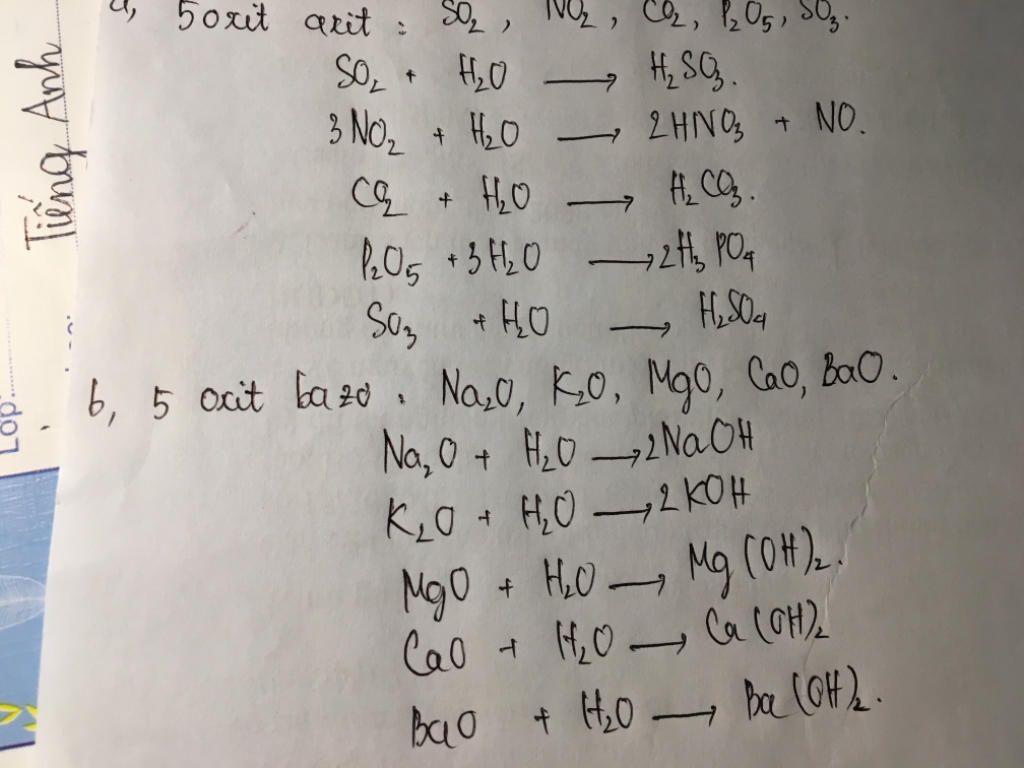 a, 5 oxit axit : SO₂, NO₂, CO₂, P₂O₅, SO₃.
SO₂ + H₂O → H₂SO₃.
3NO₂ + H₂O → 2HNO₃ + NO.
CO₂ + H₂O → H₂CO₃.
P₂O₅ + 3H₂O → 2H₃PO₄
SO₃ + H₂O → H₂SO₄
b, 5 oxit bazo : Na₂O, K₂O, MgO, CaO, BaO.
Na₂O + H₂O → 2NaOH
K₂O + H₂O → 2KOH
MgO + H₂O → Mg(OH)₂.
CaO + H₂O → Ca(OH)₂
BaO + H₂O → Ba(OH)₂.
Tiếng Anh
Lớp: